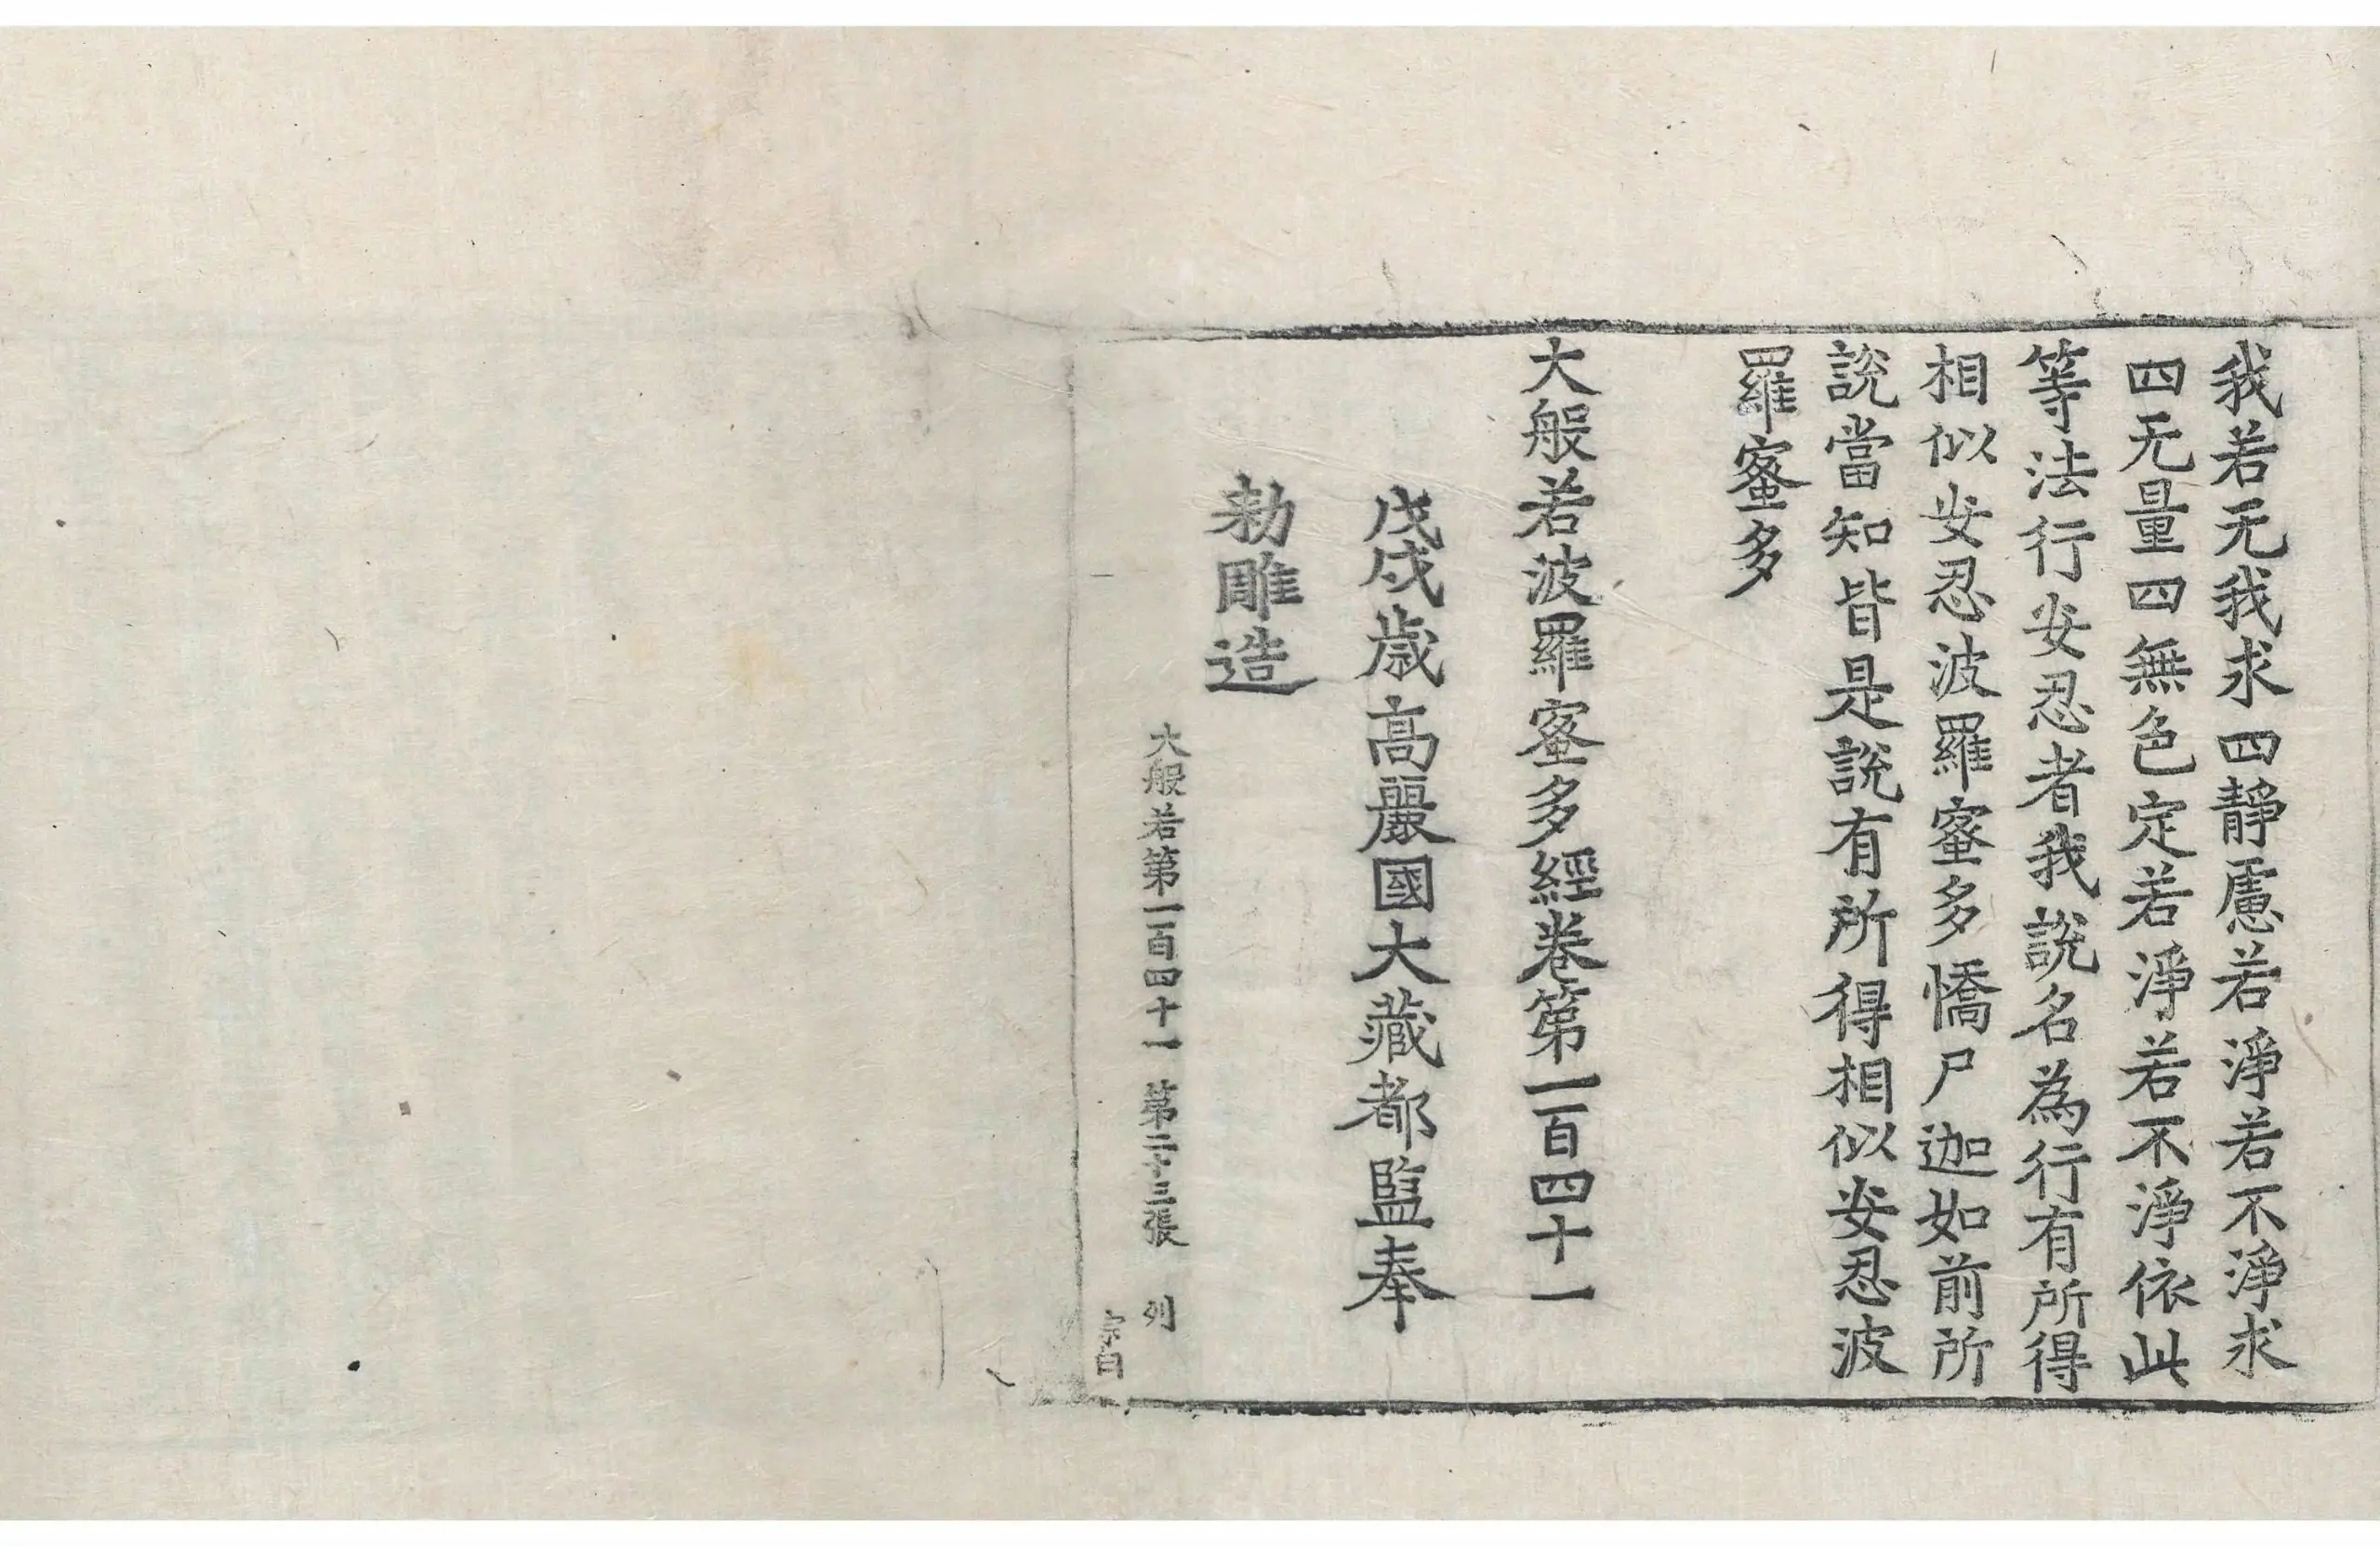 我若无我求四靜慮若淨若不淨求
四无量四無色定若淨若不淨依此
等法行安忍者我說名為行有所得
相似安忍波羅蜜多憍尸迦如前所
說當知皆是說有所得相似安忍波
羅蜜多
大般若波羅蜜多經卷第一百四十一
戊戌歲高麗國大藏都監奉
勅雕造
大般若第一百四十一 第二十三張 列